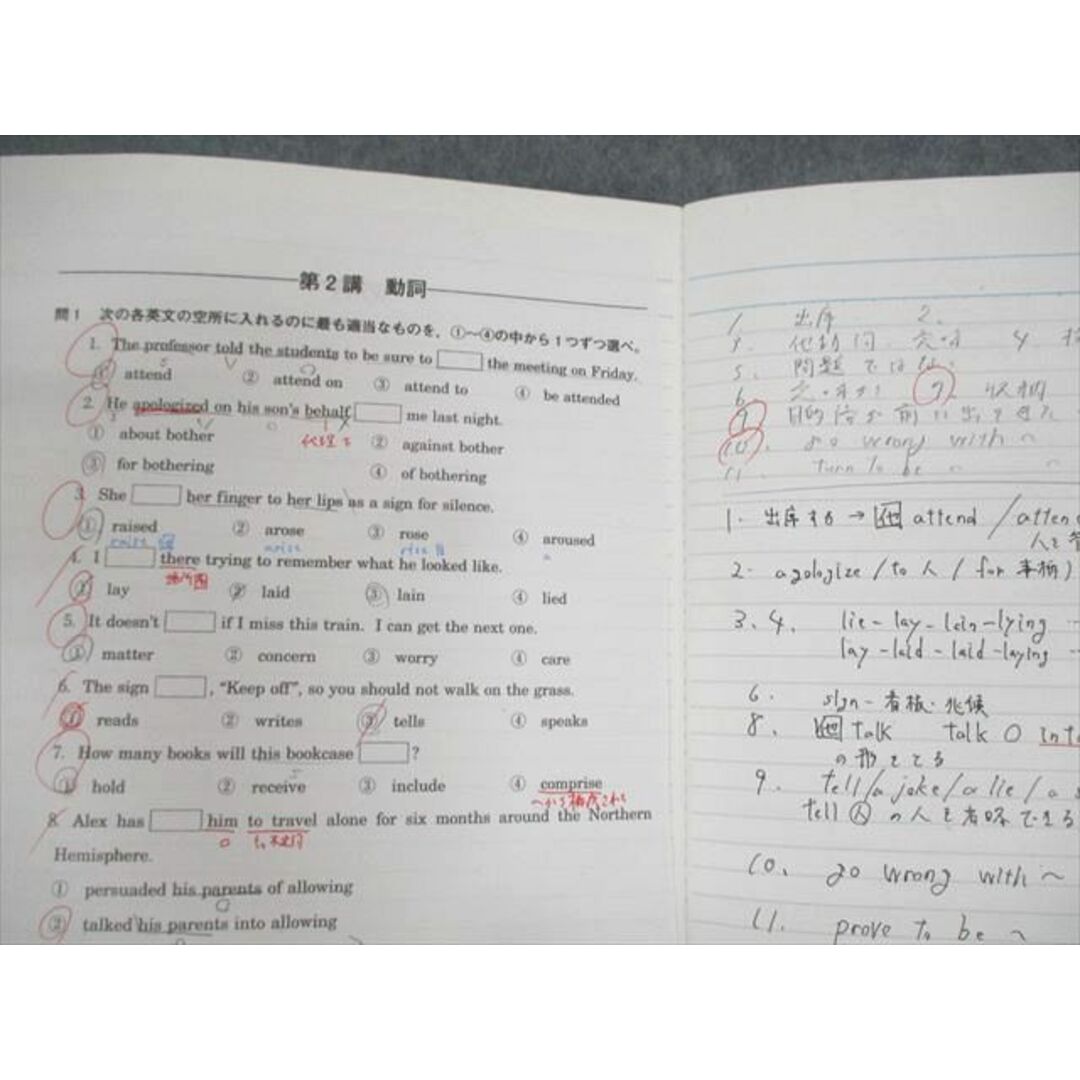 第2講 動詞
問1 次の各英文の空所に入れるのに最も適当なものを,①~④の中から1つずつ選べ。
1. The professor told the students to be sure to the meeting on Friday.
① attend ② attend on ③ attend to ④ be attended
2. He apologized on his son's behalf me last night.
代理で
① about bother ② against bother
③ for bothering ④ of bothering
3. She her finger to her lips as a sign for silence.
① raised ② arose ③ rose ④ aroused
4. I there trying to remember what he looked like.
① lay ② laid ③ lain ④ lied
5. It doesn't if I miss this train. I can get the next one.
① matter ② concern ③ worry ④ care
6. The sign , "Keep off", so you should not walk on the grass.
① reads ② writes ③ tells ④ speaks
7. How many books will this bookcase ?
① hold ② receive ③ include ④ comprise
8. Alex has him to travel alone for six months around the Northern
Hemisphere.
① persuaded his parents of allowing
② talked his parents into allowing
1. 出席 2.
5. 問題ではない
10. go wrong with ~
11. turn to be ~
1. 出席する → 他 attend /
2. apologize / to 人 / for 事柄)
3.4. lie - lay - lain - lying
lay - laid - laid - laying
6. sign - 看板・兆候
8. 他 talk talk O
の形をとる
9. tell / a joke / a lie / a
tell 人 の人を省略できる
10. go wrong with ~
11. prove to be ~